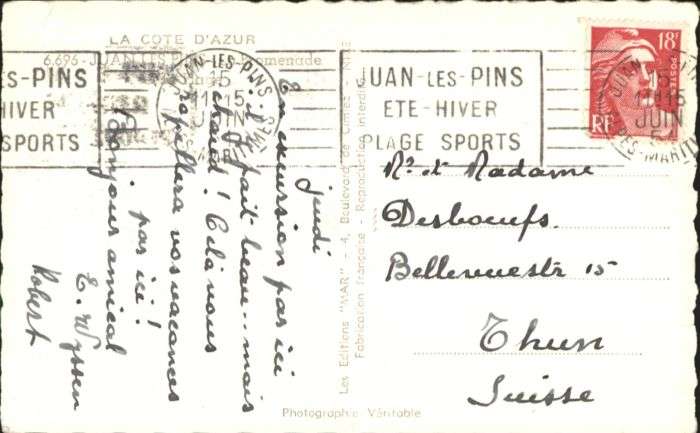 LA COTE D'AZUR
6.696 - JUAN-LES-PINS - Promenade
JUAN-LES-PINS
15
JUIN
S-PINS
HIVER
SPORTS
JUAN-LES-PINS
ETE-HIVER
PLAGE SPORTS
18F
POSTES
RF
JUIN
jeudi
En excursion par ici
il fait beau... mais
chaud! Cela vous
rapellera vos vacances
par ici!
Bonjour amical
E. Wyssen
Robert
Les Editions "MAR" - 4, Boulevard de Cimiez - NICE
Fabrication française - Reproduction interdite
Mr et Madame
Desboeufs.
Bellevuestr 15
Thun
Suisse
Photographie Véritable